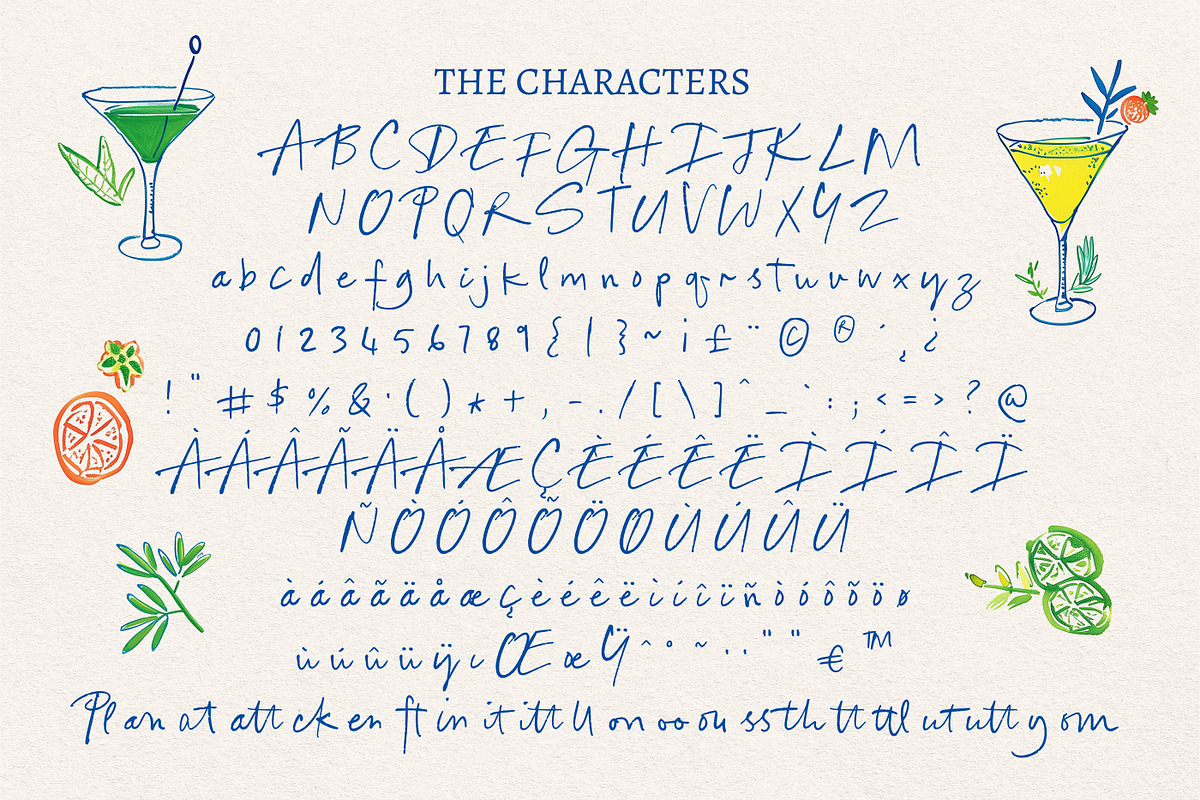 THE CHARACTERS
A B C D E F G H I J K L M
N O P Q R S T U V W X Y Z
a b c d e f g h i j k l m n o p q r s t u v w x y z
0 1 2 3 4 5 6 7 8 9 { | } ~ ¡ £ ¨ © ® ´ ¸ ¿
! " # $ % & ' ( ) * + , - . / [ \ ] ^ _ ` : ; < = > ? @
À Á Â Ã Ä Å Æ Ç È É Ê Ë Ì Í Î Ï
Ñ Ò Ó Ô Õ Ö Ø Ù Ú Û Ü
à á â ã ä å æ ç è é ê ë ì í î ï ñ ò ó ô õ ö ø
ù ú û ü ÿ ı Œ œ Ÿ ˆ ° ˜ ' ' " " € ™
Pl an at att ck en ft in it itt ll on oo ou ss th tt ttl ut utt y om